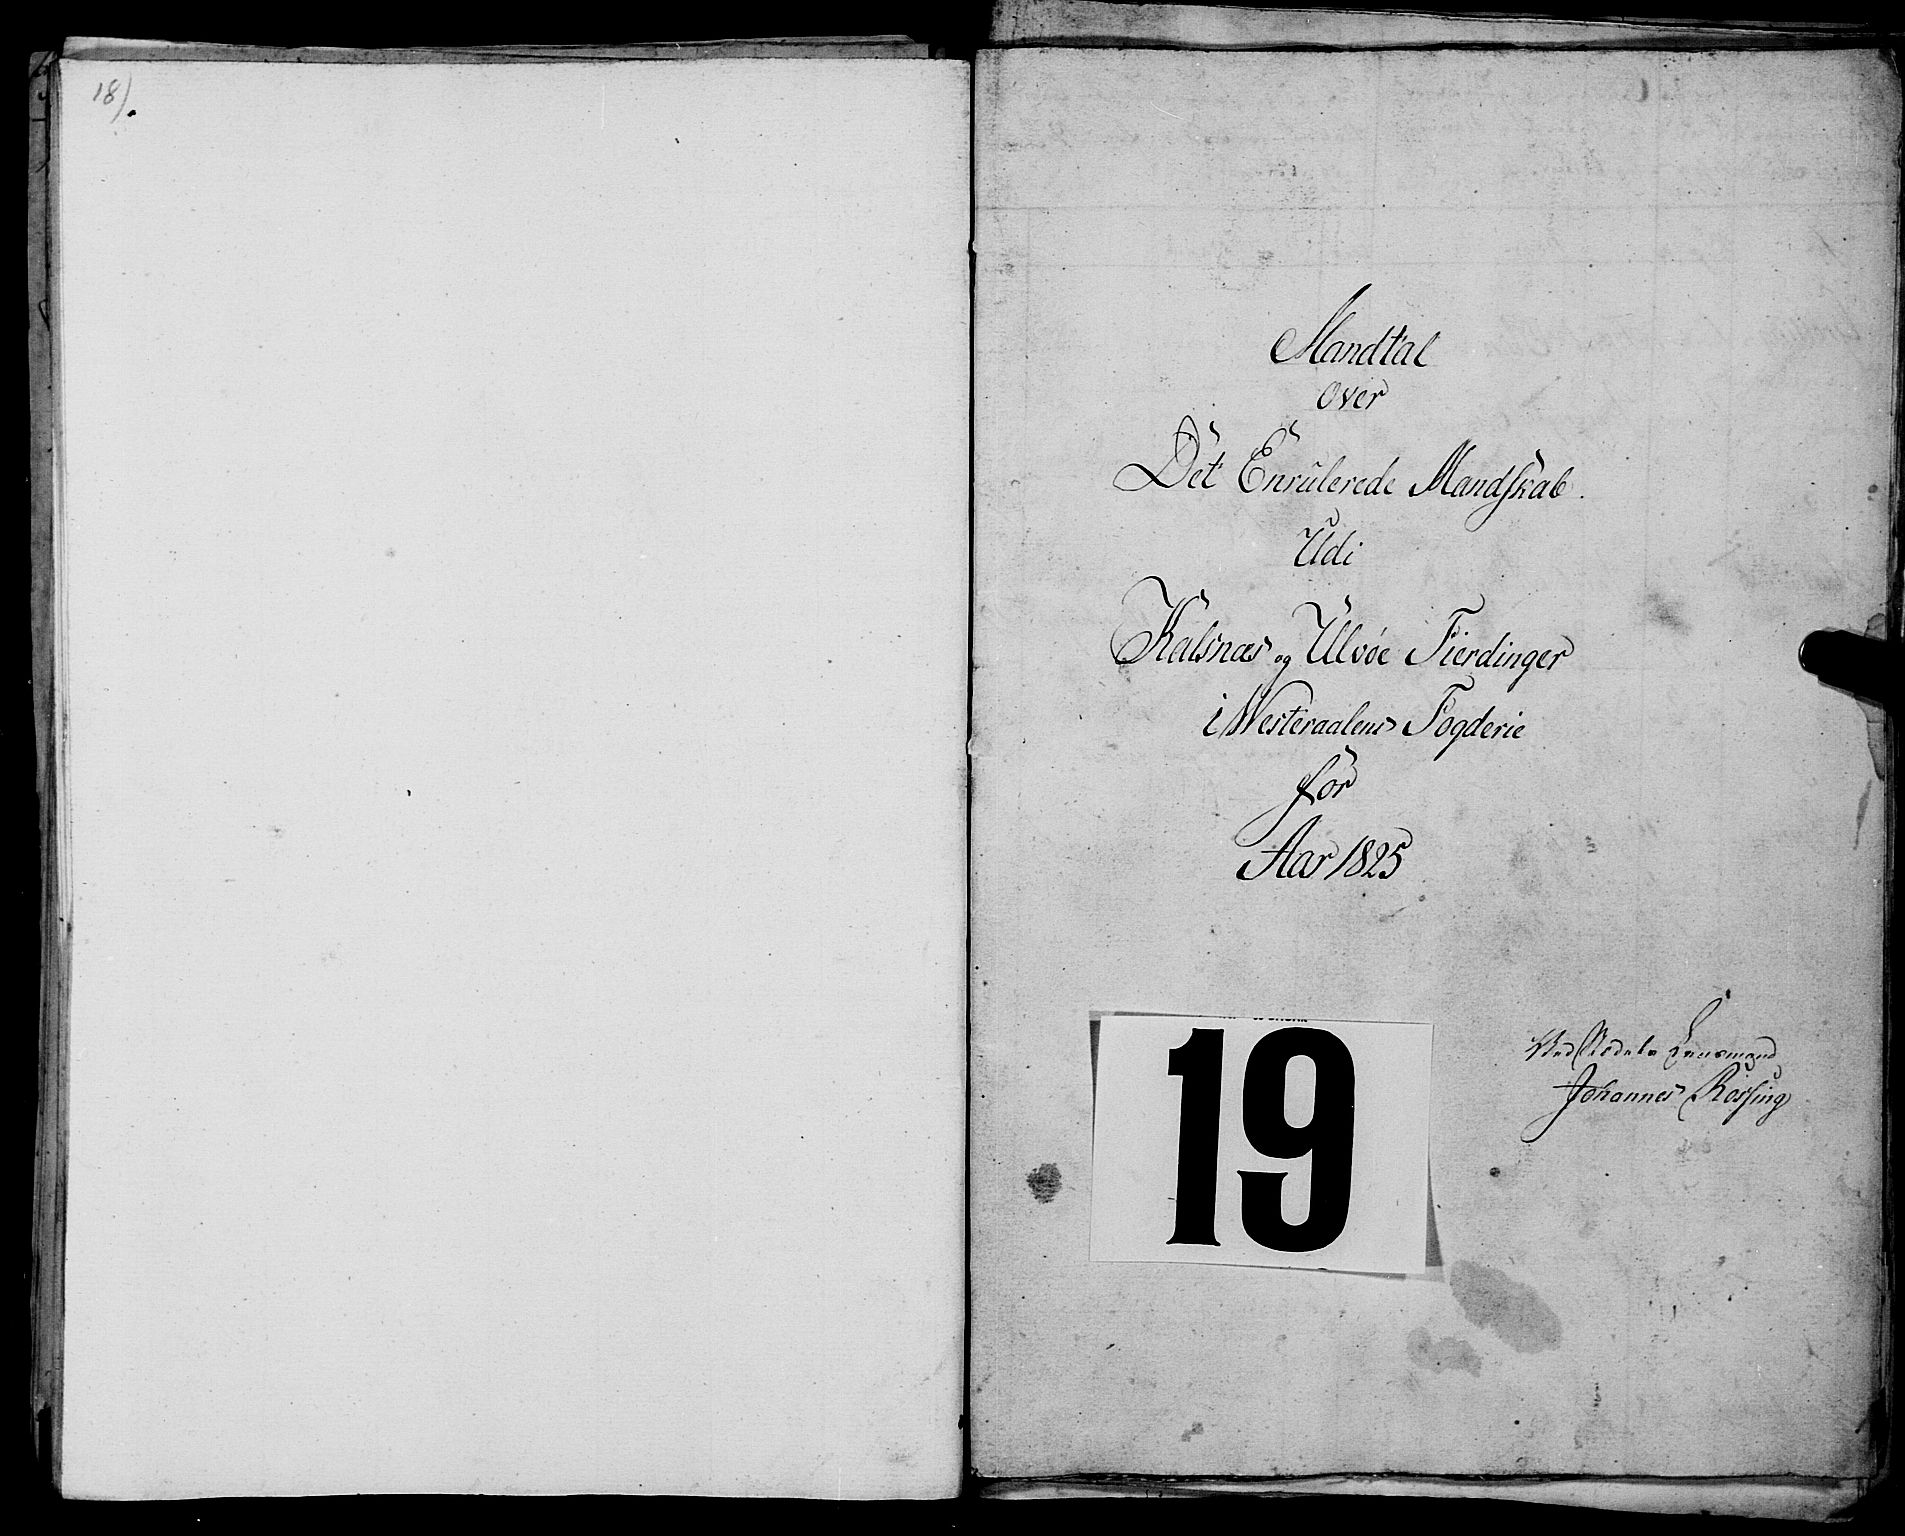 18).
Mandtal
over
Det Enrulerede Mandskab.
Udi
Kalsnæs og Ulvøe Fierdinger
i Westeraalens Fogderie
for
Aar 1825
19
Ved Lensmand
Johannes Rossing